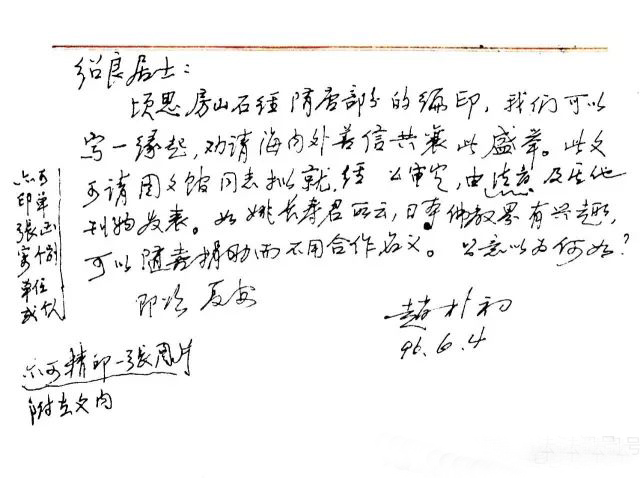 绍良居士：
顷思房山石经隋唐部分的编印，我们可以
写一缘起，劝请海内外善信共襄此盛举。此文
可请图文馆同志拟就，经公审定，由法音及其他
刊物发表。如姚长寿君所云，日本佛教界有兴趣，
可以随喜捐助而不用合作名义。公意以为何如？
即颂 夏安
赵朴初
96.6.4
亦可
印单
张函
寄个别
单位
或人
亦可精印一张图片
附在文内